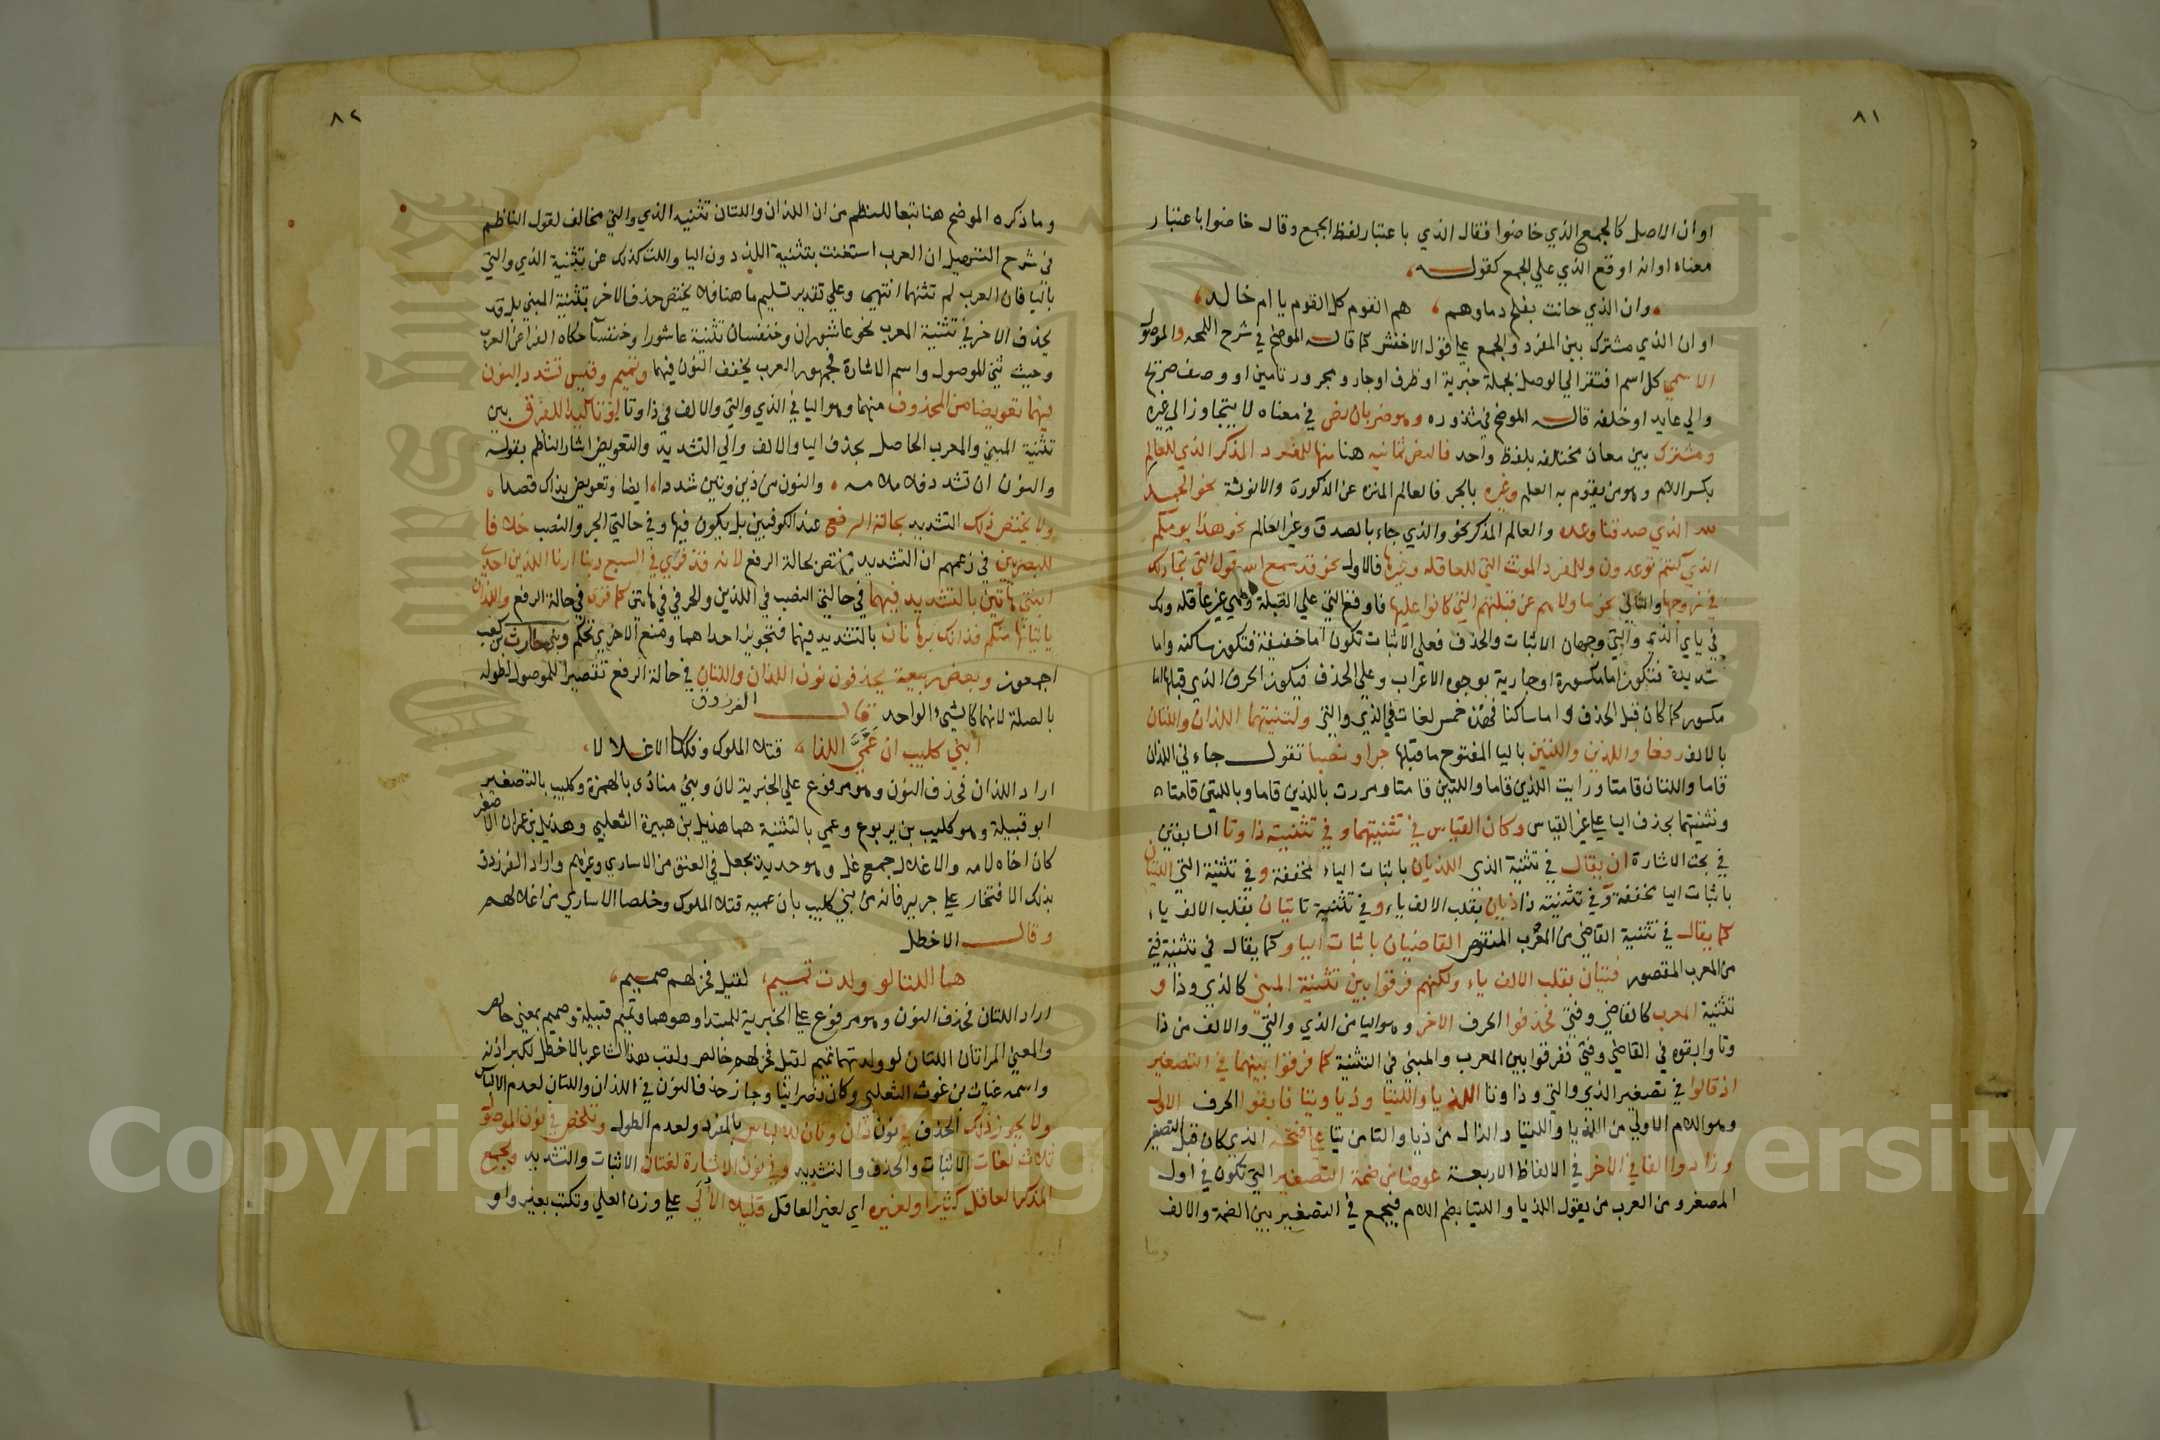 ٨١
او ان الاصل كالجمع الذي خاضوا فقال الذي باعتبار لفظ الجمع وقال خاضوا باعتبار
معناه او انه اوقع الذي علي الجمع كقوله
وان الذي حانت بفلج دماوهم هم القوم كل القوم يا ام خالد
او ان الذي مشترك بين المفرد والجمع علي قول الاخفش كما قاله الموضح في شرح اللمحه والموصول
الاسمي كل اسم افتقر الي الوصل بجملة خبرية او ظرف او جار ومجرور تامين او وصف صريح
والي عايد او خلفه قاله الموضح في شذوره وهو ضربان نص في معناه لا يتجاوزه الي غيره
ومشترك بين معان مختلفه بلفظ واحد فالنص ثمانيه هنا منها للمفرد المذكر الذي للعالم
بكسر اللام وهو من يقوم به العلم وغيره بالجر فالعالم المنزه عن الذكورة والانوثة نحو الحمد
لله الذي صدقنا وعده والعالم المذكر نحو والذي جاء بالصدق وغير العالم نحو هذا يومكم
الذي كنتم توعدون وللمفرد الموث التي للعاقله وغيرها فالاول نحو قد سمع الله قول التي تجادلك
في زوجها والثاني نحو ما ولاهم عن قبلتهم التي كانوا عليها فاوقع التي علي القبلة وهي غير عاقله ولك
في ياي الذي والتي وجهان الاثبات والحذف فعلي الاثبات تكون اما خفيفة فتكون ساكنه واما
شديدة فتكون اما مكسورة او جارية بوجوه الاعراب وعلي الحذف فيكون الحرف الذي قبلها اما
مكسور كما كان قبل الحذف واما ساكنا فهذه خمس لغات في الذي والتي ولتثنيتهما اللذان واللتان
بالالف رفعا واللذين واللتين باليا المفتوح ما قبلها جرا ونصبا تقول جاءني اللذان
قاما واللتان قامتا ورايت اللذين قاما واللتين قامتا ومررت باللذين قاما وباللتين قامتا
وتثنيتهما بحذف اليا علي غير القياس وكان القياس في تثنيتهما وفي تثنية ذا وتا السابقتين
في بحث الاشارة ان يقال في تثنية الذي اللذيان باثبات الياء مخففة وفي تثنية التي اللتيان
باثبات اليا مخففة وفي تثنيته ذا ذيان بقلب الالف ياء وفي تثنية تا تيان بقلب الالف ياء
كما يقال في تثنية القاضي من المعرب المنقوص القاضيان باثبات اليا وكما يقال في تثنية فتي
من المعرب المقصور فتيان بقلب الالف ياء ولكنهم فرقوا بين تثنية المبني كالذي وذا و
تثنية المعرب كالقاضي وفتي فحذفوا الحرف الاخر وهو اليا من الذي والتي والالف من ذا
وتا وابقوه في القاضي وفتي ففرقوا بين المعرب والمبني في التثنية كما فرقوا بينهما في التصغير
اذ قالوا في تصغير الذي والتي وذا وتا اللذيا واللتيا وذيا وتيا فابقوا الحرف الاول
وهو اللام الاولي من اللذيا واللتيا والذال من ذيا والتا من تيا علي فتحه الذي كان قبل التصغير
وزادوا الفا في الاخر في الالفاظ الاربعة عوضا من ضمة التصغير التي تكون في اول
المصغر ومن العرب من يقول اللذيا واللتيا بضم اللام فيجمع في التصغير بين الضمة والالف
وما
٨٢
وما ذكره الموضح هنا تبعا للنظم من ان اللذان واللتان تثنيه الذي والتي مخالف لقول الناظم
في شرح التسهيل ان العرب استغنت بتثنية اللذ دون اليا واللت كذلك عن تثنية الذي والتي
باليا فان العرب لم تثنهما انتهي وعلي تقدير تسليم ما هنا فلا يختص حذف الاخر بتثنية المبني بل قد
يحذف الاخر في تثنية المعرب نحو عاشوران وخنفسان تثنية عاشورا وخنفسا حكاه الفرا عن العرب
وحيث ثني الموصول واسم الاشارة فجمهور العرب يخفف النون فيهما وتميم وقيس تشدد النون
فيهما تعويضا من المحذوف منهما وهو اليا في الذي والتي والالف في ذا وتا او تاكيدا للفرق بين
تثنية المبني والمعرب الحاصل بحذف اليا والالف والي التشديد والتعويض اشار الناظم بقوله
والنون ان تشدد فلا ملامه والنون من ذين وتين شددا ايضا وتعويض بذاك قصدا
ولا يختص ذلك التشديد بحالة الرفع عند الكوفيين بل يكون فيها وفي حالتي الجر والنصب خلافا
للبصريين في زعمهم ان التشديد مختص بحالة الرفع لانه قد قري في السبع ربنا ارنا اللذين احدي
ابنتي هاتين بالتشديد فيهما في حالتي النصب في اللذين والجر في هاتين كما قري في حالة الرفع واللذان
ياتيانها منكم فذانك برهانان بالتشديد فيهما فتجويز احداهما ومنع الاخري تحكم وبني حارث بن كعب
اجمعون وبعض ربيعة يحذفون نون اللذان واللتان في حالة الرفع تقصيرا للموصول لطوله
بالصلة لانهما كالشيء الواحد قال الفرزدق
ابني كليب ان عمي اللذا قتلا الملوك وفككا الاغلالا
اراد اللذان فحذف النون وهو مرفوع علي الخبرية لان وبني منادي بالهمزة وكليب بالتصغير
ابو قبيلة وهو كليب بن يربوع وعمي بالتثنية هما هذيل بن هبيرة الثعلبي وهذيل بن عمران الاصغر
كان اخاه لامه والاغلال جمع غل وهو حديد يجعل في العنق من الاساري وغيرهم واراد الفرزدق
بذلك الافتخار علي جرير فانه من بني كليب بان عميه قتلا الملوك وخلصا الاساري من اغلالهم
وقال الاخطل
هما اللتا لو ولدت تميم لقيل فخر لهم صميم
اراد اللتان فحذف النون وهو مرفوع علي الخبرية للمبتدا وهو هما وتميم قبيلة وصميم بمعني خالص
والمعني المراتان اللتان لو ولدتهما تميم لقيل فخر لهم خالص ولقب هذا الشاعر بالاخطل لكبر اذنه
واسمه غياث بن غوث الثعلبي وكان نصرانيا وجاز حذف النون في اللذان واللتان لعدم الالباس
ولا يجوز ذلك الحذف في نون ذان وتان للالباس بالمفرد ولعدم الطول وتلخص في نون الموصول
ثلاث لغات الاثبات والحذف والتشديد وفي نون الاشارة لغتان الاثبات والتشديد ولجمع
المذكر العاقل كثيرا ولغيره اي لغير العاقل قليلا الألي علي وزن العلي وتكتب بغير واو
Copyright © King Saud University